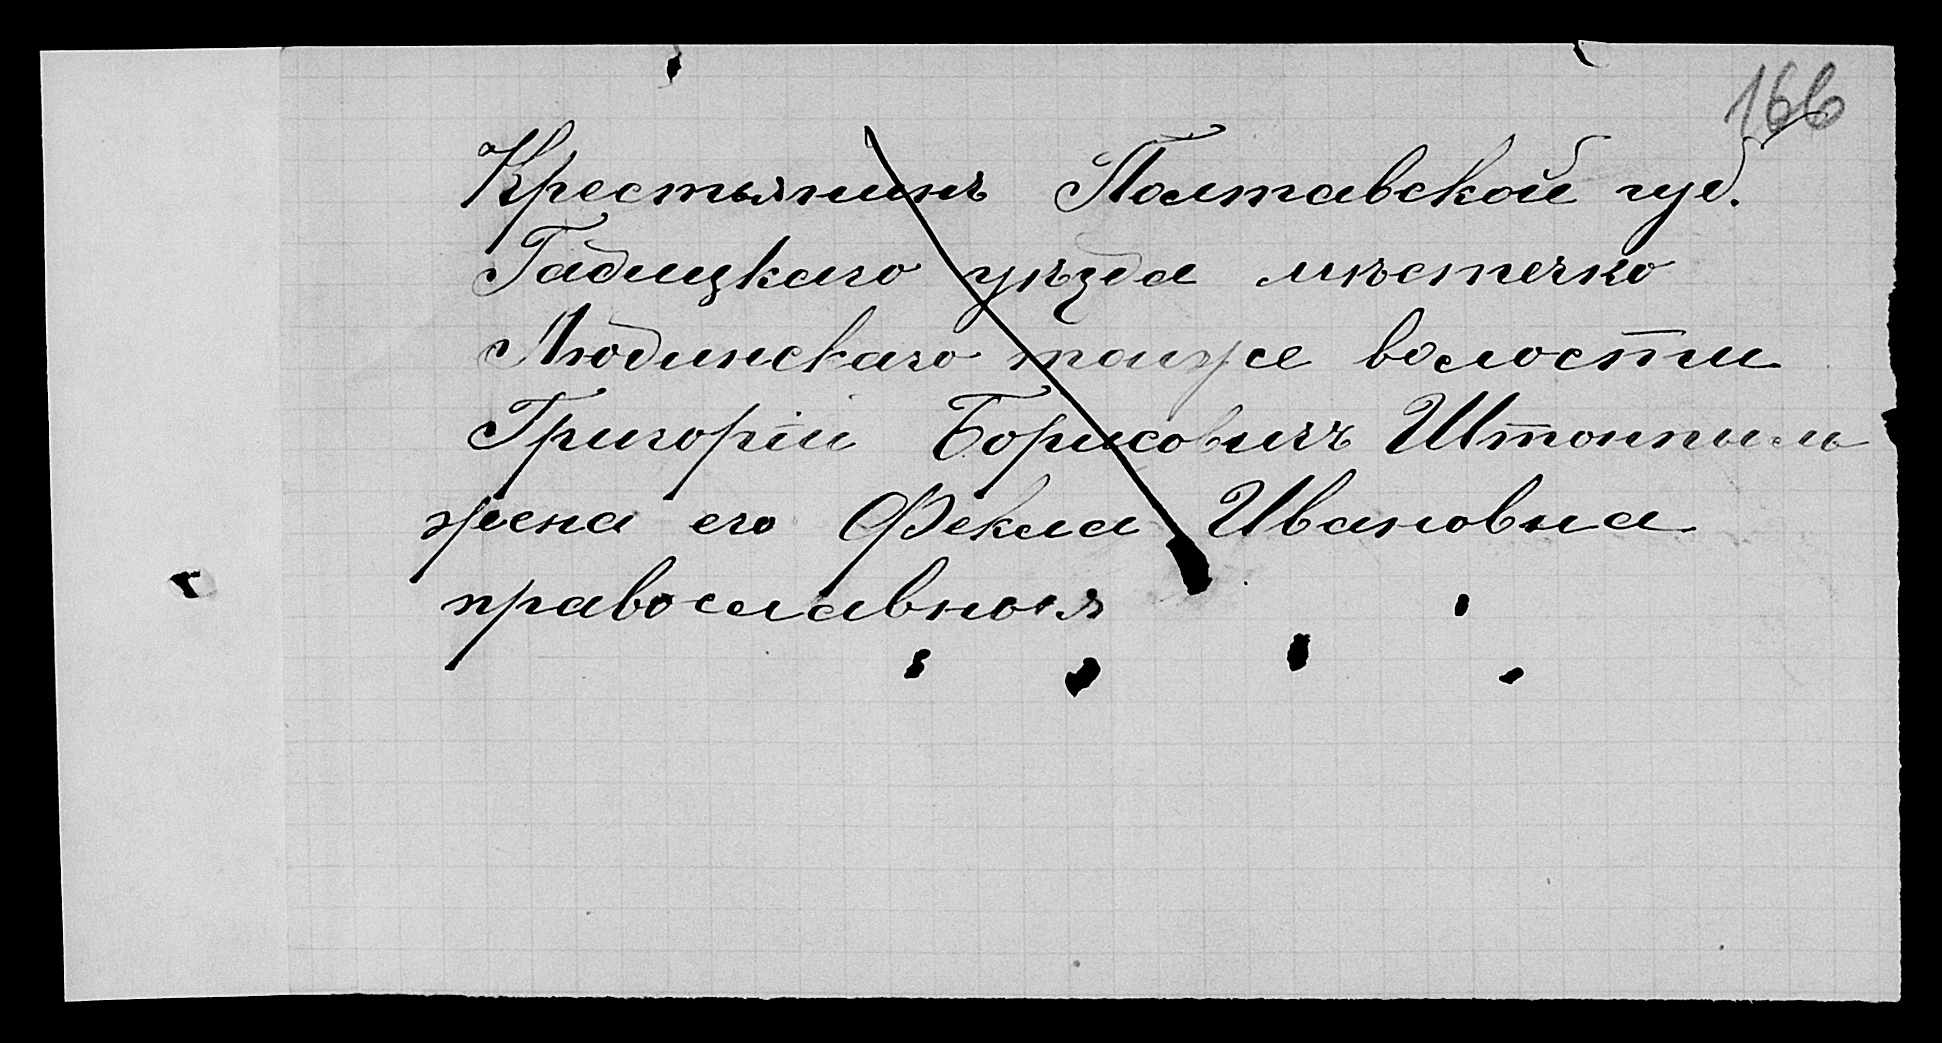 166
Крестьянинъ Полтавской губ.
Гадицкаго уѣзда мѣстечко
Людинскаго тойже волости
Григорій Борисовичъ
жена его Фекла Ивановна
православныя